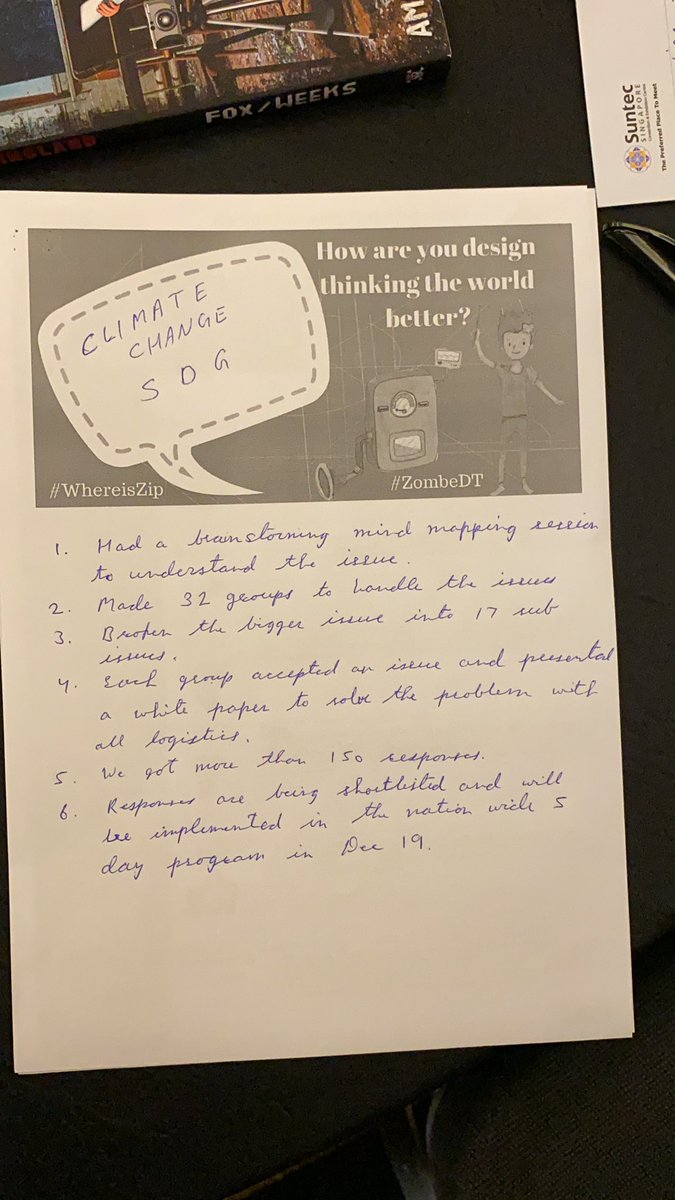 AM
FOX/WEEKS
Suntec
SINGAPORE
The Preferred Place To Meet
How are you design
thinking the world
better?
CLIMATE
CHANGE
SDG
#WhereisZip
#ZombeDT
1. Had a brainstorming mind mapping session
to understand the issue.
2. Made 32 groups to handle the issues
3. Broken the bigger issue into 17 sub
issues.
4. Each group accepted an issue and presented
a white paper to solve the problem with
all logistics.
5. We got more than 150 responses.
6. Responses are being shortlisted and will
be implemented in the nation wide 5
day program in Dec 19.